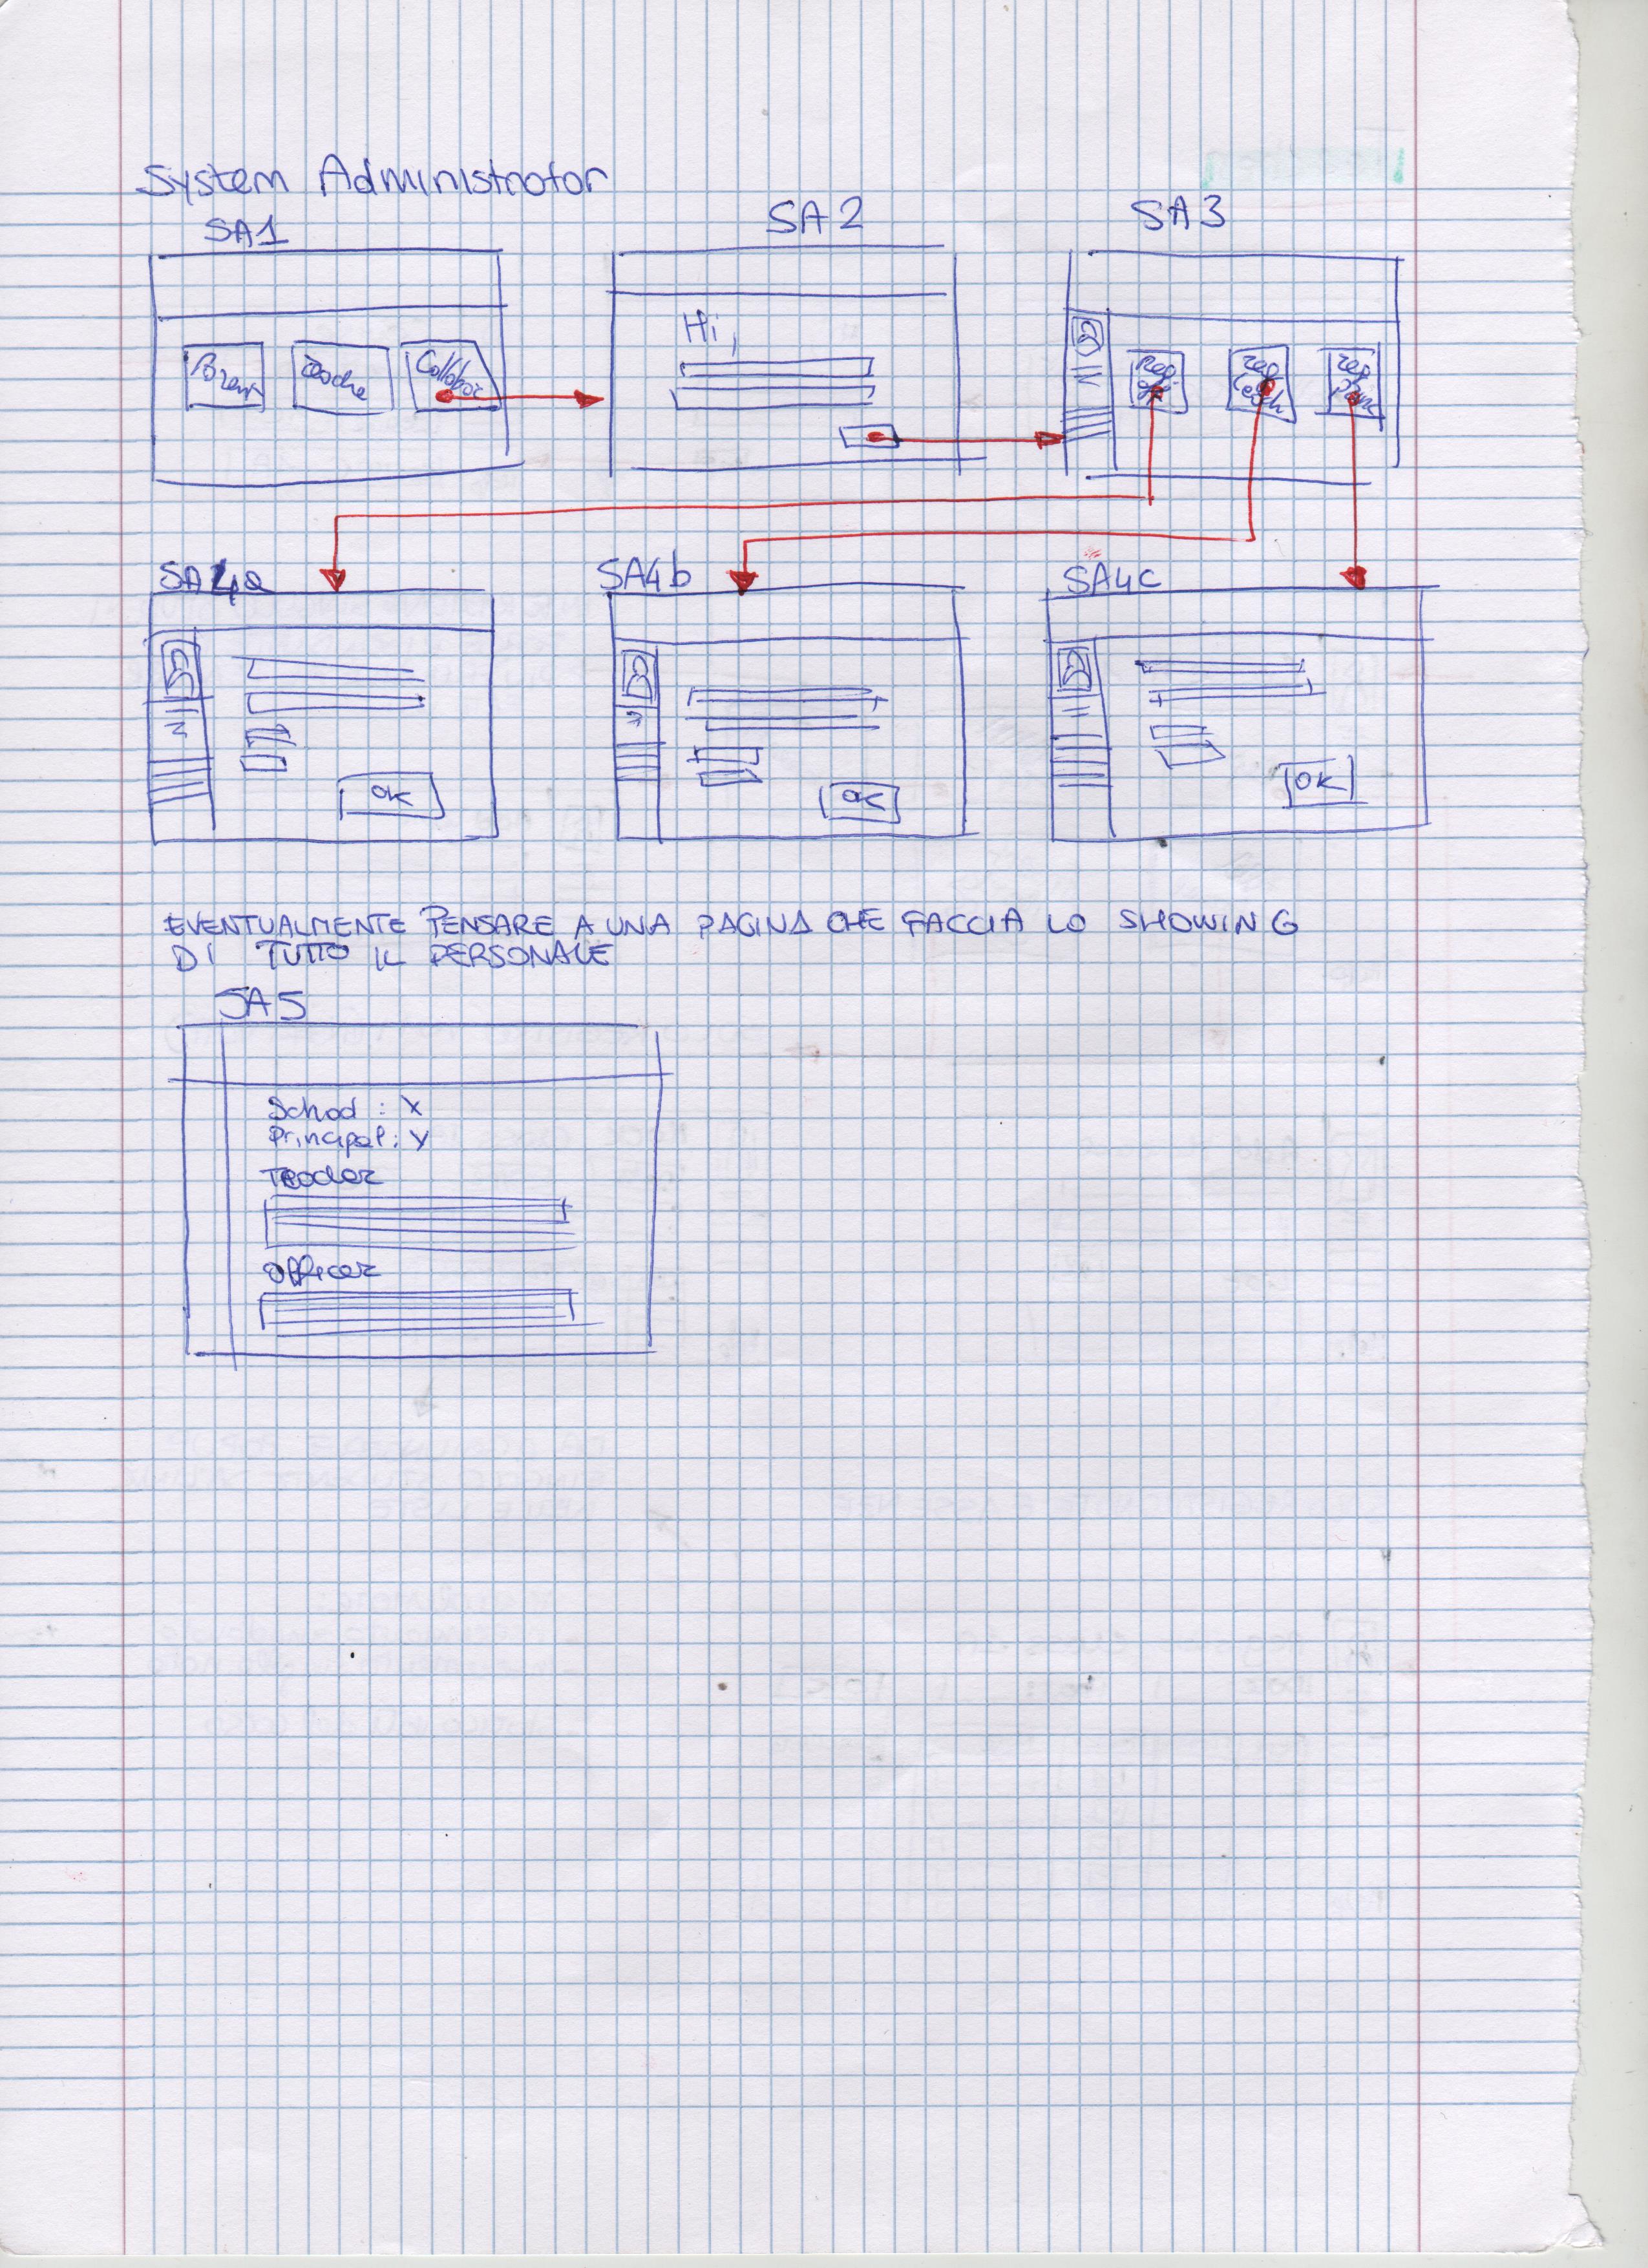 System Administrator
SA1
SA2
SA3
Collabor
Hi,
Reg
Reg
Reg
SA4a
SA4b
SA4c
OK
OK
OK
EVENTUALMENTE PENSARE A UNA PAGINA CHE FACCIA LO SHOWING
DI TUTTO IL PERSONALE
SA5
School : X
Principal : Y
Teacher
Officer